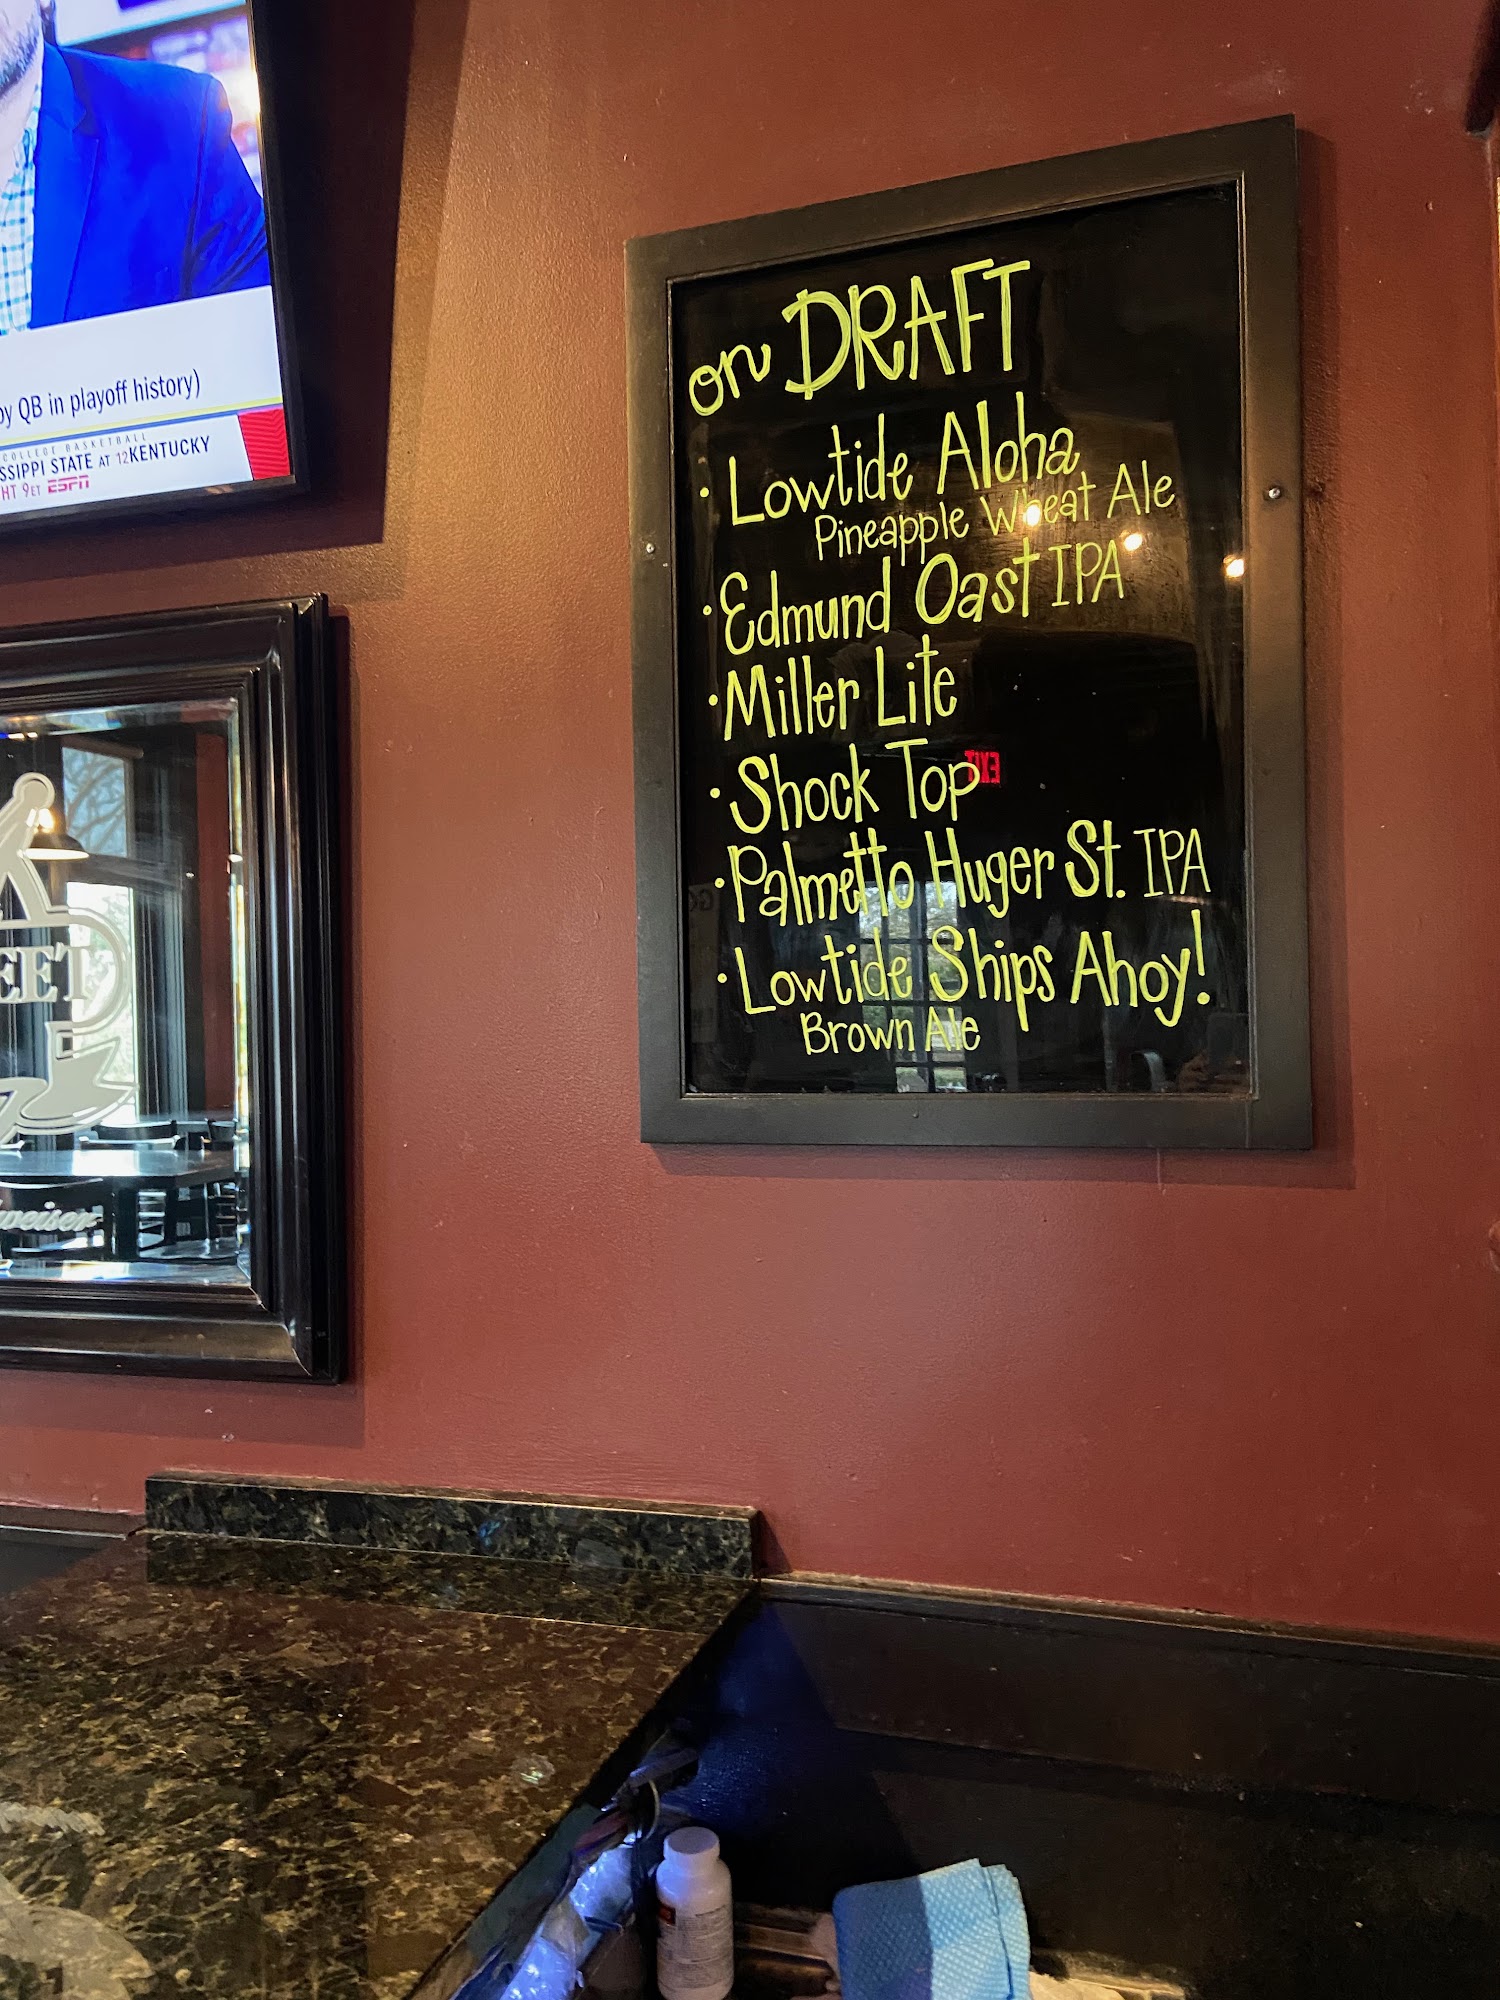 by QB in playoff history)
COLLEGE BASKETBALL
SSIPPI STATE AT 12KENTUCKY
HT 9ET ESPN
on DRAFT
· Lowtide Aloha
Pineapple Wheat Ale
· Edmund Oast IPA
· Miller Lite
· Shock Top
EXIT
· Palmetto Huger St. IPA
· Lowtide Ships Ahoy!
Brown Ale
EET
weiser